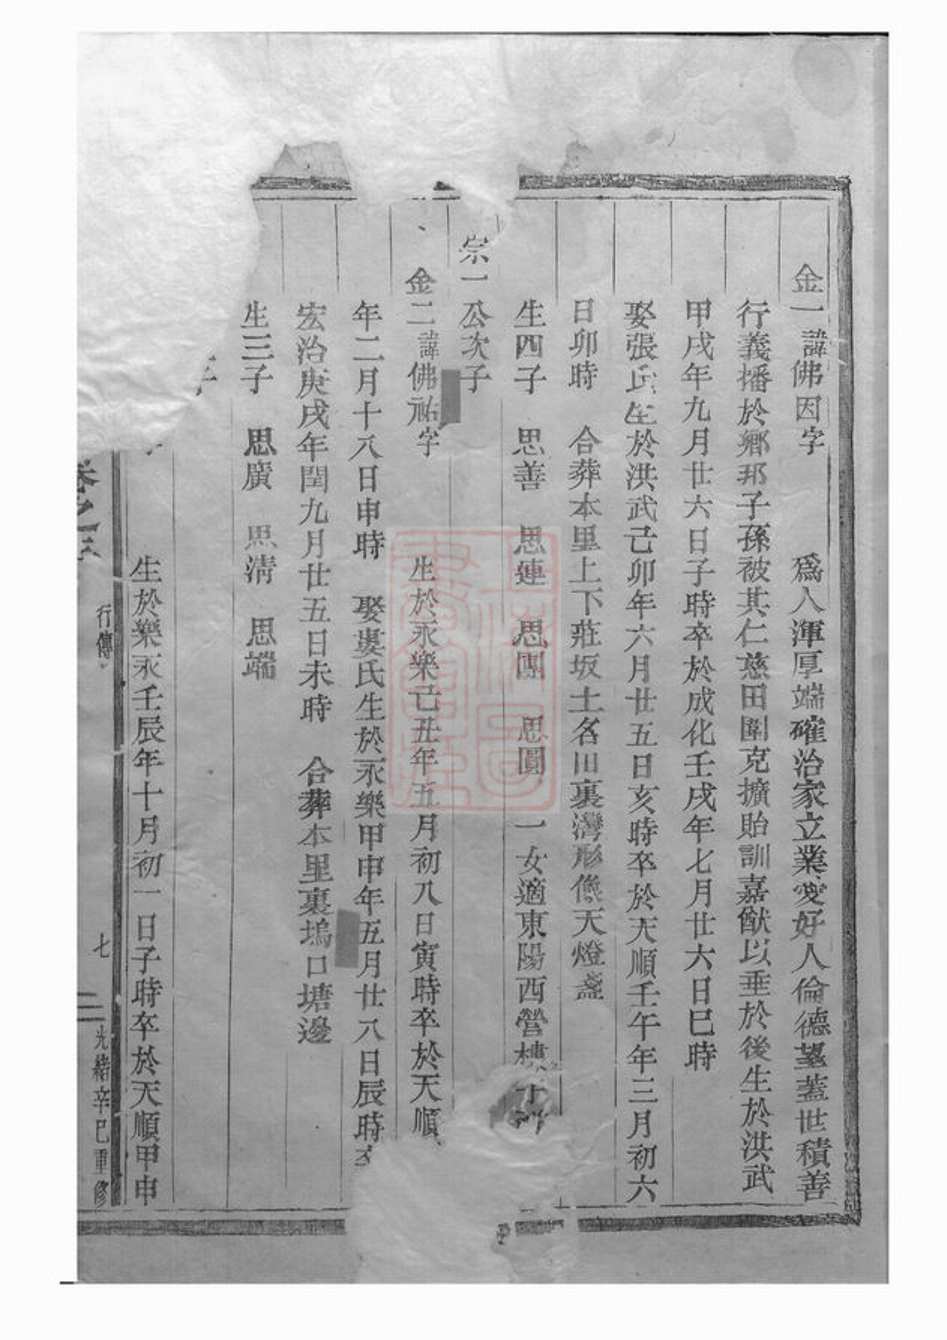 金一諱佛因字　爲人渾厚端確治家立業愛好人倫德望蓋世積善
行義播於鄉邦子孫被其仁慈田園克擴貽訓嘉猷以垂於後生於洪武
甲戌年九月廿六日子時卒於成化壬戌年七月廿六日巳時
娶張氏生於洪武己卯年六月廿五日亥時卒於天順壬午年三月初六
日卯時　合葬本里上下莊坂土名旧裏灣形像天燈盞
生四子　思善　思連　思團　思圓　一女適東陽西營樓
宗一公次子
金二諱佛祐字　生於永樂己丑年五月初八日寅時卒於天順
年二月十八日申時　娶婁氏生於永樂甲申年五月廿八日辰時
宏治庚戌年閏九月廿五日未時　合葬本里裏塢口塘邊
生三子　思廣　思清　思端
子
生於樂永壬辰年十月初一日子時卒於天順甲申
卷之
行傳
七
光緒辛巳重修